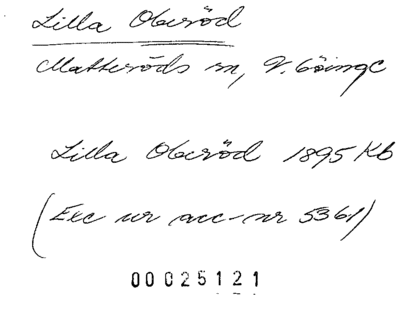 Lilla Oberöd
Matteröds sn, V. Göinge
Lilla Oberöd 1895 Kb
(Exc ur acc-nr 5361)
00025121